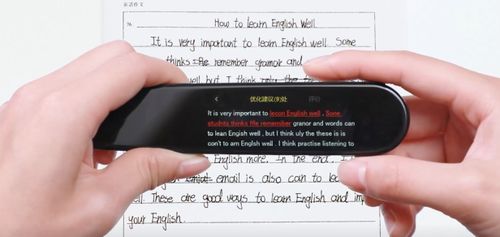 How to learn English Well.
It is very important to learn English well. Some
thinks the remember gramor and
well but I think only the
优化建议(处
It is very important to lecon English well . Some
studnts thinks the remember granor and words can
to lean Engish well , but I think uly the these is is
con't to am Englsh well . I think practise listening to
English more. In the end. I
email is also can to lea
ell. These are good ways to learn English and im
your English.